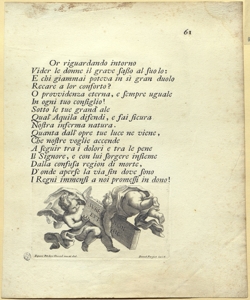 61
Or riguardando intorno
Vider le donne il grave sasso al suolo:
E chi giammai poteva in sì gran duolo
Recare a lor conforto?
O provvidenza eterna, e sempre uguale
In ogni tuo consiglio!
Sotto le tue grand'ale
Qual Aquila difendi, e fai sicura
Nostra inferma natura.
Quanta dall'opre tue luce ne viene,
Che nostre voglie accende
A seguir tra i dolori e tra le pene
Il Signore, e con lui sorgere insieme
Dalla confusa region di morte,
D'onde aperse la via sin dove sono
I Regni immensi a noi promessi in dono!